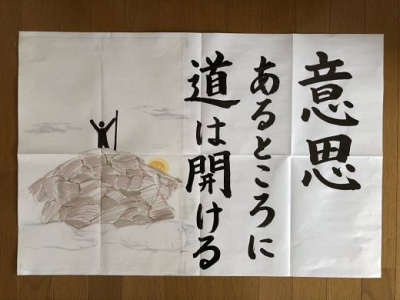 意思
あるところに
道は開ける